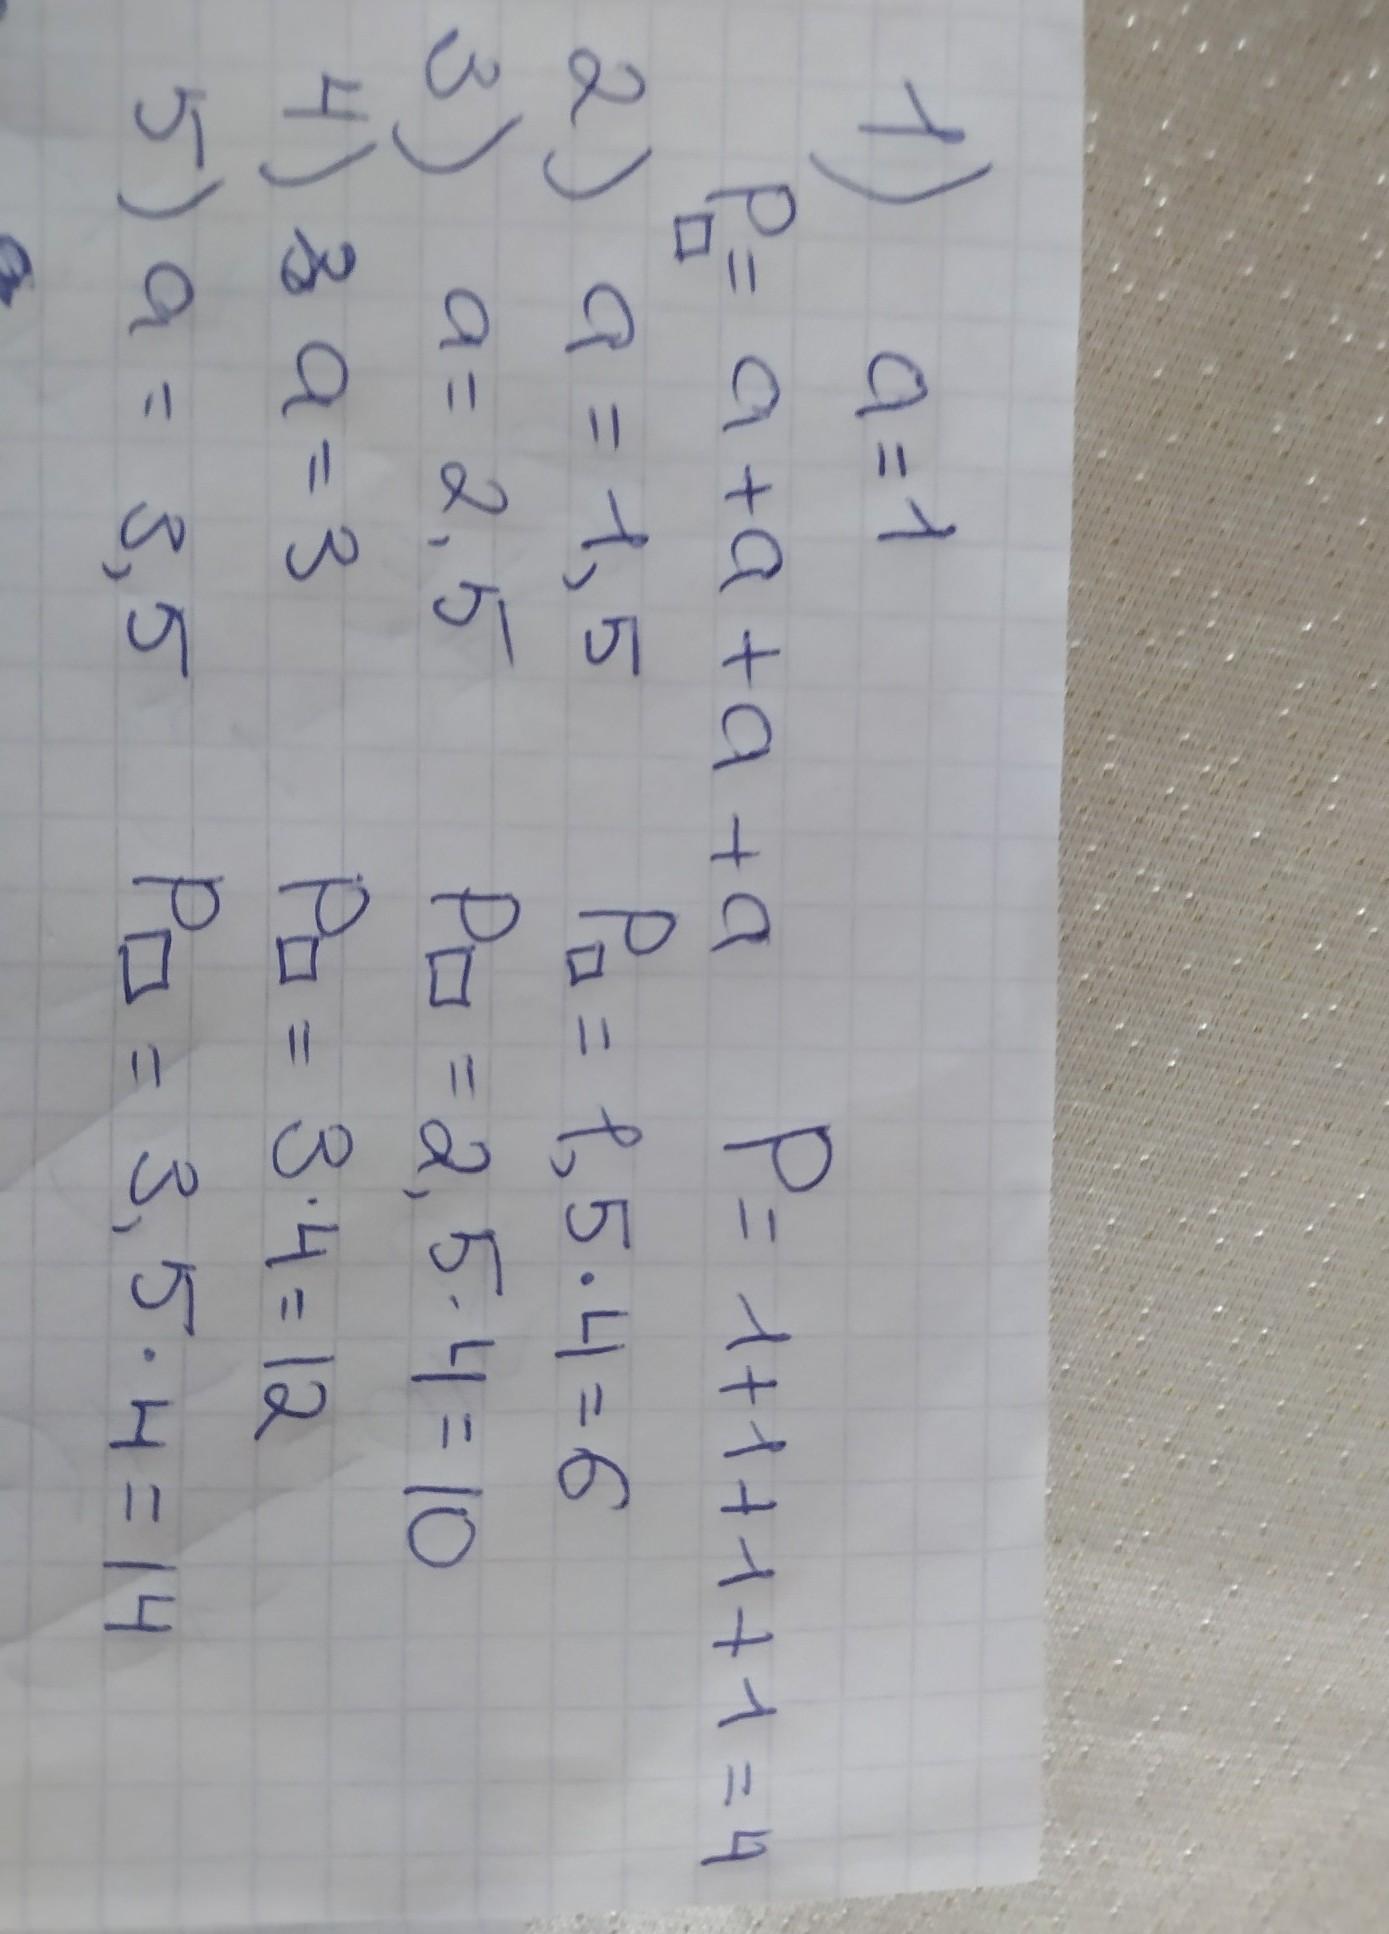 1) a = 1
P□ = a + a + a + a P = 1 + 1 + 1 + 1 = 4
2) a = 1,5 P□ = 1,5 · 4 = 6
3) a = 2,5 P□ = 2,5 · 4 = 10
4) a = 3 P□ = 3 · 4 = 12
5) a = 3,5 P□ = 3,5 · 4 = 14